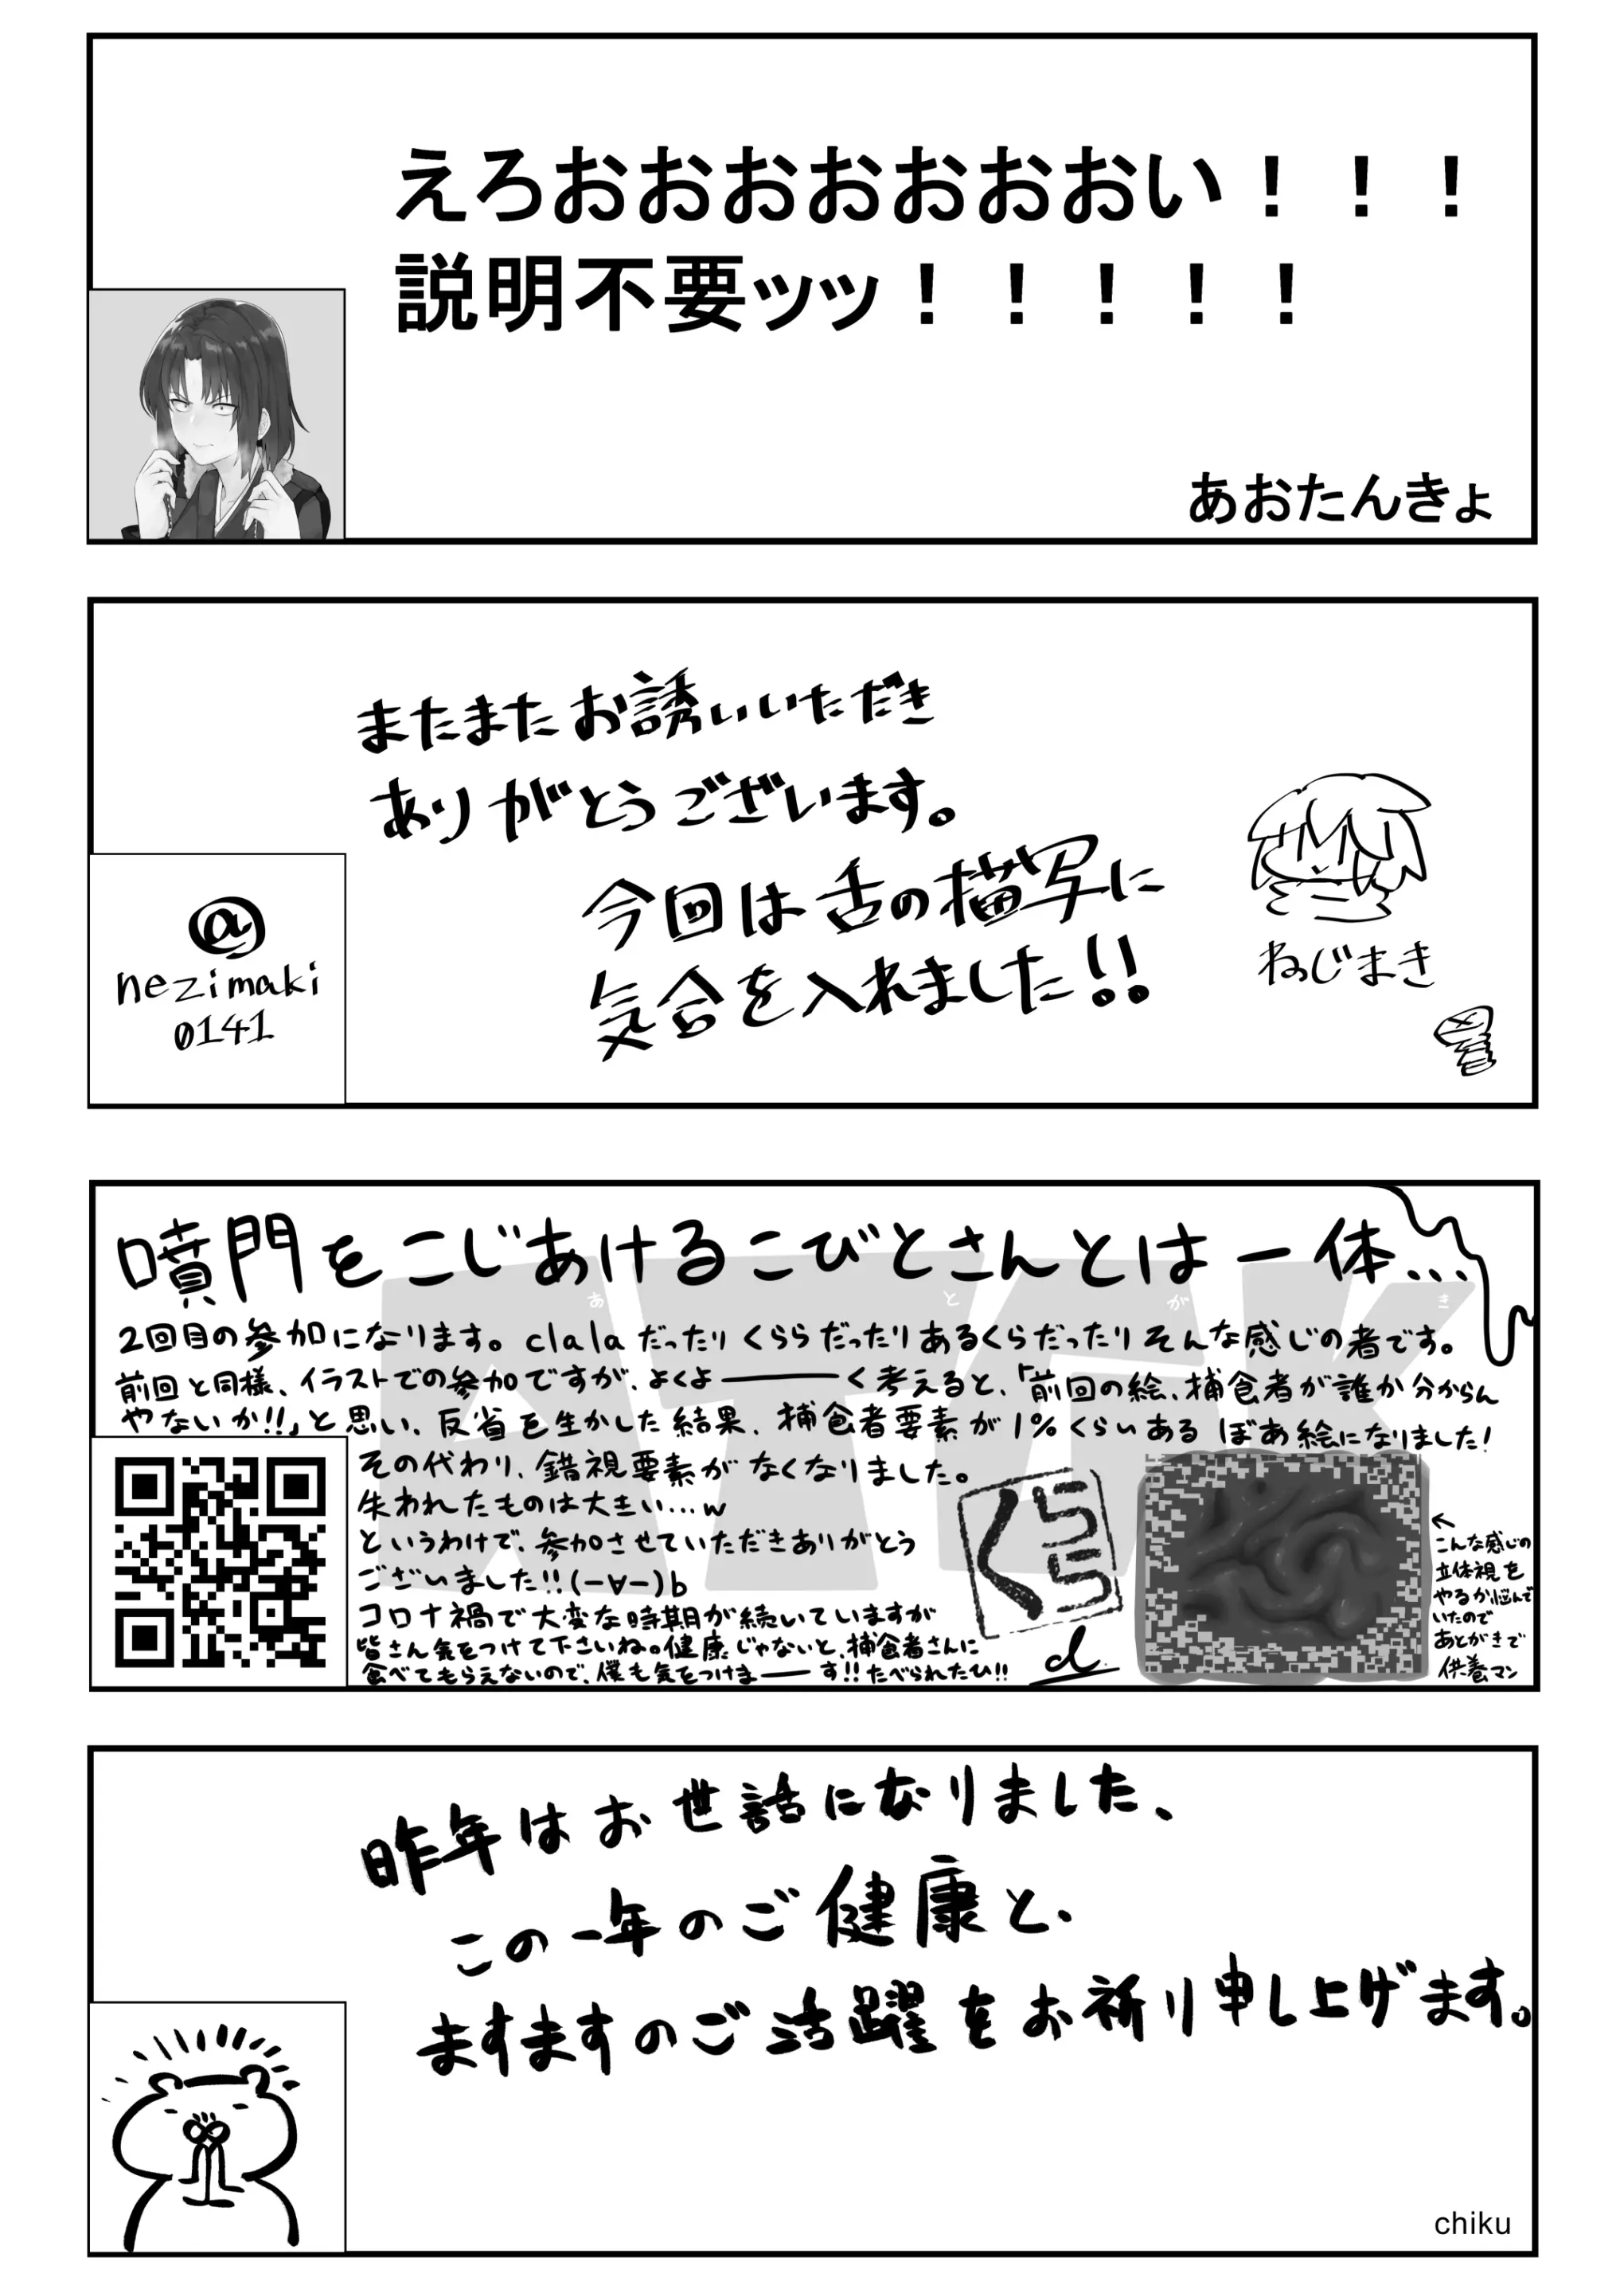 えろおおおおおおおい！！！
説明不要ッッ！！！！！
あおたんきょ
またまたお誘いいただき
ありがとうございます。
今回は舌の描写に
気合を入れました!!
ねじまき
@
nezimaki
0141
噴門をこじあけるこびとさんとは一体...
あとがき
2回目の参加になります。clalaだったりくららだったりあるくらだったりそんな感じの者です。
前回と同様、イラストでの参加ですが、よくよ―――く考えると、「前回の絵、捕食者が誰か分からん
やないか!!」と思い、反省を生かした結果、捕食者要素が1%くらいあるぼあ絵になりました!
その代わり、錯視要素がなくなりました。
失われたものは大きい...w
というわけで、参加させていただきありがとう
ございました!!(-∀-)b
コロナ禍で大変な時期が続いていますが
皆さん気をつけて下さいね。健康じゃないと、捕食者さんに
食べてもらえないので、僕も気をつけま――す!!たべられたひ!!
くらら
d
←
こんな感じの
立体視を
やるか悩んで
いたので
あとがきで
供養マン
昨年はお世話になりました、
この一年のご健康と、
ますますのご活躍をお祈り申し上げます。
chiku